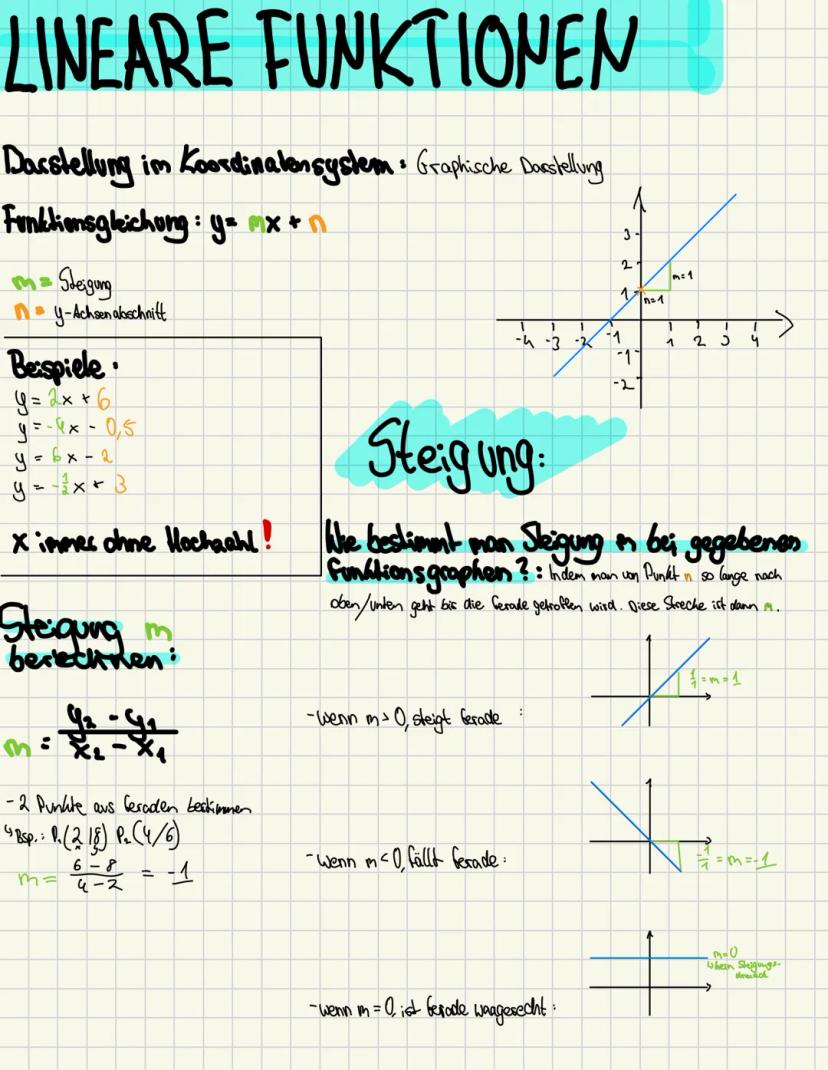 LINEARE FUNKTIONEN
Darstellung im Koordinatensystem: Graphische Darstellung
Funktionsgleichung: y= mx + n
m = Steigung
n = y-Achsenabschnitt
3
2
1
m=1
n=1
-4 -3 -2 -1 1 2 3 4
-1
-2
Beispiele:
y = 2x + 6
y = -4x - 0,5
y = 6x - 2
y = -1/2x + 3
x immer ohne Hochzahl!
Steigung:
Wie bestimmt man Steigung m bei gegebenen
Funktionsgraphen?: Indem man von Punkt n so lange nach
oben/unten geht bis die Gerade getroffen wird. Diese Strecke ist dann m.
Steigung m
berechnen:
m = y₂ - y₁ / x₂ - x₁
- 2 Punkte aus Geraden bestimmen
↳ Bsp.: P₁(2|8) P₂(4/6)
m = 6-8 / 4-2 = -1
- wenn m > 0, steigt Gerade :
1/1 = m = 1
- wenn m < 0, fällt Gerade:
-1/1 = m = -1
m=0
↳ kein Steigungs-
dreieck
- wenn m = 0, ist Gerade waagerecht: